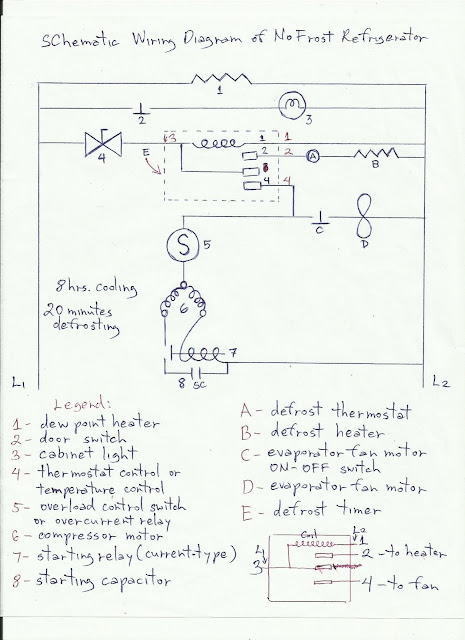 SChematic Wiring Diagram of No Frost Refrigerator
1
2
3
4
E
3
1
2
3
4
1
2
4
A
B
C
D
S 5
8 hrs. cooling
20 minutes
defrosting
6
7
8 SC
L1
L2
Legend:
1- dew point heater
2- door switch
3- cabinet light
4- thermostat control or
temperature control
5- overload control switch
or overcurrent relay
6- compressor motor
7- starting relay (current-type)
8- starting capacitor
A- defrost thermostat
B- defrost heater
C- evaporator fan motor
ON-OFF switch
D- evaporator fan motor
E- defrost timer
Coil
L2
1
2 -to heater
L1
3
4 -to fan